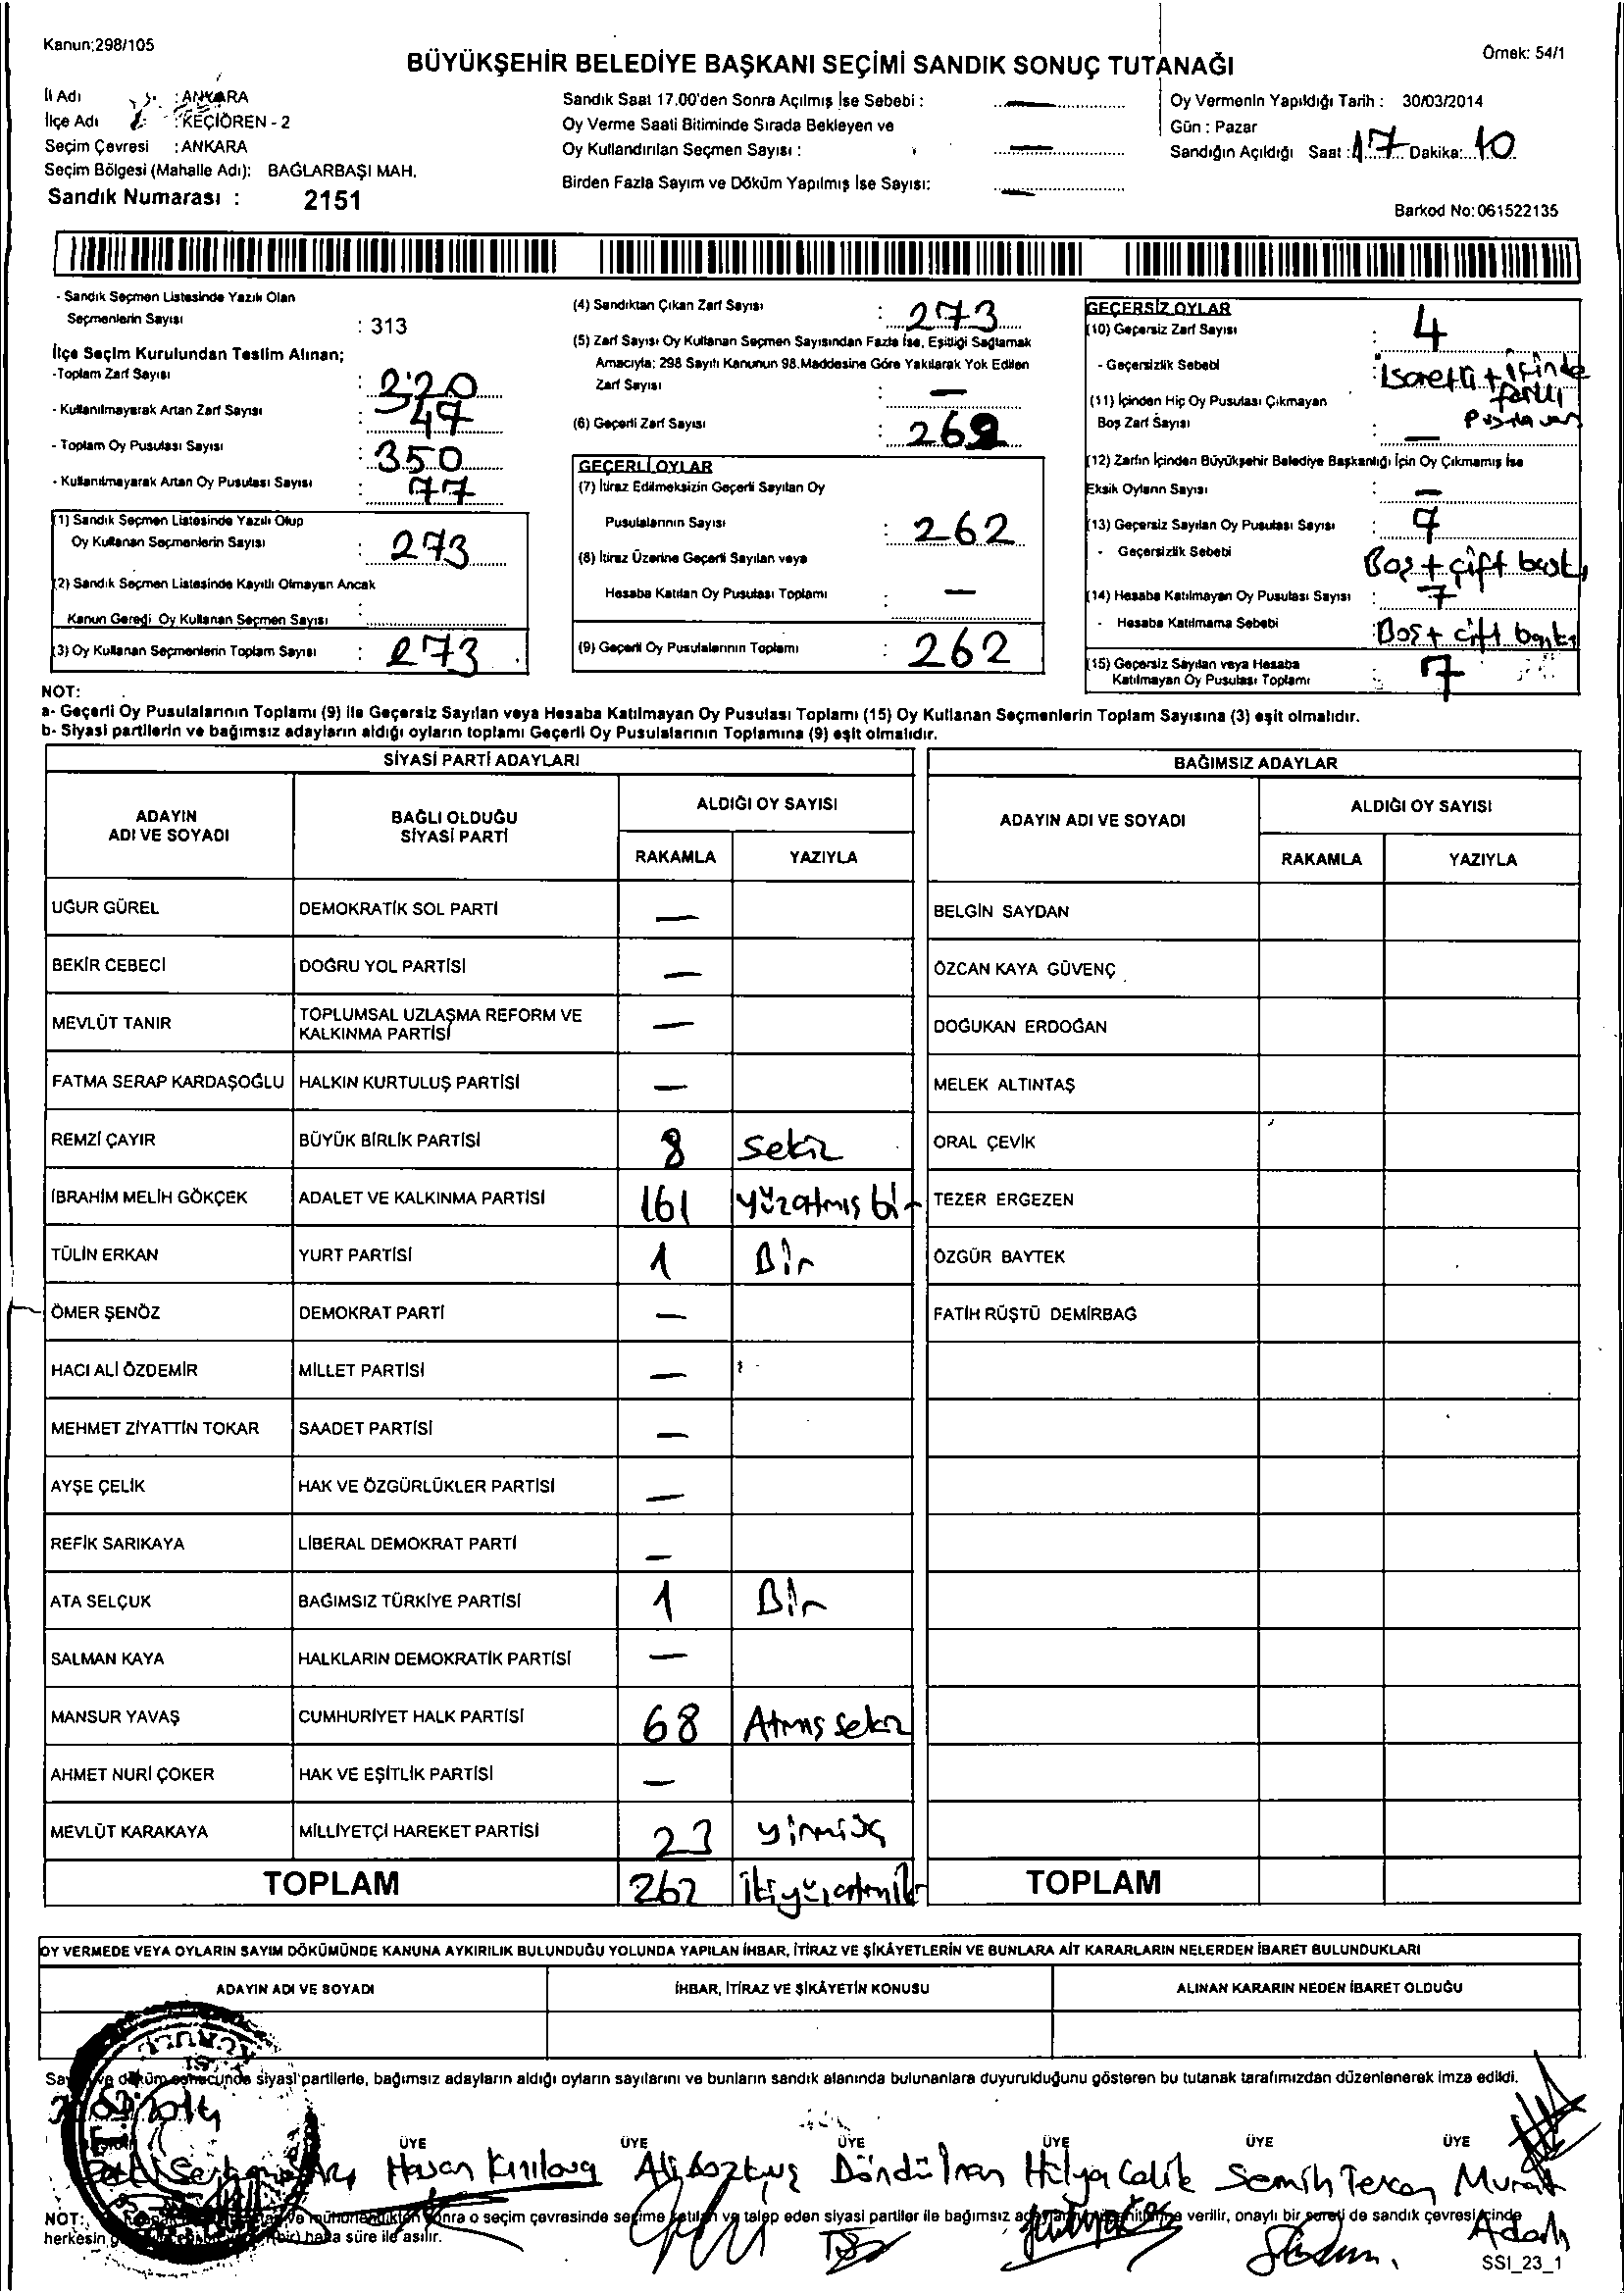 Kanun;298/105
Örnek: 54/1
BÜYÜKŞEHİR BELEDİYE BAŞKANI SEÇİMİ SANDIK SONUÇ TUTANAĞI
İl Adı : ANKARA
İlçe Adı : KEÇİÖREN - 2
Seçim Çevresi : ANKARA
Seçim Bölgesi (Mahalle Adı): BAĞLARBAŞI MAH.
Sandık Numarası : 2151
Sandık Saat 17.00'den Sonra Açılmış İse Sebebi : —
Oy Verme Saati Bitiminde Sırada Bekleyen ve
Oy Kullandırılan Seçmen Sayısı : —
Birden Fazla Sayım ve Döküm Yapılmış İse Sayısı: —
Oy Vermenin Yapıldığı Tarih : 30/03/2014
Gün : Pazar
Sandığın Açıldığı Saat : 17 Dakika: 10
Barkod No: 061522135
- Sandık Seçmen Listesinde Yazılı Olan
Seçmenlerin Sayısı : 313
İlçe Seçim Kurulundan Teslim Alınan;
-Toplam Zarf Sayısı : 320
- Kullanılmayarak Artan Zarf Sayısı : 47
- Toplam Oy Pusulası Sayısı : 350
- Kullanılmayarak Artan Oy Pusulası Sayısı : 77
(1) Sandık Seçmen Listesinde Yazılı Olup
Oy Kullanan Seçmenlerin Sayısı : 273
(2) Sandık Seçmen Listesinde Kayıtlı Olmayan Ancak
Kanun Gereği Oy Kullanan Seçmen Sayısı :
(3) Oy Kullanan Seçmenlerin Toplam Sayısı : 273
(4) Sandıktan Çıkan Zarf Sayısı : 273
(5) Zarf Sayısı Oy Kullanan Seçmen Sayısından Fazla İse, Eşitliği Sağlamak
Amacıyla; 298 Sayılı Kanunun 98.Maddesine Göre Yakılarak Yok Edilen
Zarf Sayısı : —
(6) Geçerli Zarf Sayısı : 269
GEÇERLİ OYLAR
(7) İtiraz Edilmeksizin Geçerli Sayılan Oy
Pusulalarının Sayısı : 262
(8) İtiraz Üzerine Geçerli Sayılan veya
Hesaba Katılan Oy Pusulası Toplamı : —
(9) Geçerli Oy Pusulalarının Toplamı : 262
GEÇERSİZ OYLAR
(10) Geçersiz Zarf Sayısı : 4
- Geçersizlik Sebebi : İşaretli + içinde
farklı
(11) İçinden Hiç Oy Pusulası Çıkmayan
Boş Zarf Sayısı : —
(12) Zarfın İçinden Büyükşehir Belediye Başkanlığı İçin Oy Çıkmamış İse
Eksik Oyların Sayısı : —
(13) Geçersiz Sayılan Oy Pusulası Sayısı : 7
- Geçersizlik Sebebi Boş + çift baskı
(14) Hesaba Katılmayan Oy Pusulası Sayısı : 7
- Hesaba Katılmama Sebebi : Boş + çift baskı
(15) Geçersiz Sayılan veya Hesaba
Katılmayan Oy Pusulası Toplamı : 7
NOT:
a- Geçerli Oy Pusulalarının Toplamı (9) ile Geçersiz Sayılan veya Hesaba Katılmayan Oy Pusulası Toplamı (15) Oy Kullanan Seçmenlerin Toplam Sayısına (3) eşit olmalıdır.
b- Siyasi partilerin ve bağımsız adayların aldığı oyların toplamı Geçerli Oy Pusulalarının Toplamına (9) eşit olmalıdır.
SİYASİ PARTİ ADAYLARI
ADAYIN ADI VE SOYADI
BAĞLI OLDUĞU SİYASİ PARTİ
ALDIĞI OY SAYISI
RAKAMLA YAZIYLA
UĞUR GÜREL DEMOKRATİK SOL PARTİ —
BEKİR CEBECİ DOĞRU YOL PARTİSİ —
MEVLÜT TANIR TOPLUMSAL UZLAŞMA REFORM VE KALKINMA PARTİSİ —
FATMA SERAP KARDAŞOĞLU HALKIN KURTULUŞ PARTİSİ —
REMZİ ÇAYIR BÜYÜK BİRLİK PARTİSİ 8 Sekiz
İBRAHİM MELİH GÖKÇEK ADALET VE KALKINMA PARTİSİ 161 yüzatmış bir
TÜLİN ERKAN YURT PARTİSİ 1 Bir
ÖMER ŞENÖZ DEMOKRAT PARTİ —
HACI ALİ ÖZDEMİR MİLLET PARTİSİ —
MEHMET ZİYATTİN TOKAR SAADET PARTİSİ —
AYŞE ÇELİK HAK VE ÖZGÜRLÜKLER PARTİSİ —
REFİK SARIKAYA LİBERAL DEMOKRAT PARTİ —
ATA SELÇUK BAĞIMSIZ TÜRKİYE PARTİSİ 1 Bir
SALMAN KAYA HALKLARIN DEMOKRATİK PARTİSİ —
MANSUR YAVAŞ CUMHURİYET HALK PARTİSİ 68 Atmış Sekiz
AHMET NURİ ÇOKER HAK VE EŞİTLİK PARTİSİ —
MEVLÜT KARAKAYA MİLLİYETÇİ HAREKET PARTİSİ 23 yirmiüç
TOPLAM 262
BAĞIMSIZ ADAYLAR
ADAYIN ADI VE SOYADI
ALDIĞI OY SAYISI
RAKAMLA YAZIYLA
BELGİN SAYDAN
ÖZCAN KAYA GÜVENÇ
DOĞUKAN ERDOĞAN
MELEK ALTINTAŞ
ORAL ÇEVİK
TEZER ERGEZEN
ÖZGÜR BAYTEK
FATİH RÜŞTÜ DEMİRBAĞ
TOPLAM
OY VERMEDE VEYA OYLARIN SAYIM DÖKÜMÜNDE KANUNA AYKIRILIK BULUNDUĞU YOLUNDA YAPILAN İHBAR, İTİRAZ VE ŞİKÂYETLERİN VE BUNLARA AİT KARARLARIN NELERDEN İBARET BULUNDUKLARI
ADAYIN ADI VE SOYADI
İHBAR, İTİRAZ VE ŞİKÂYETİN KONUSU
ALINAN KARARIN NEDEN İBARET OLDUĞU
siyasi partilerle, bağımsız adayların aldığı oyların sayılarını ve bunların sandık alanında bulunanlara duyurulduğunu gösteren bu tutanak tarafımızdan düzenlenerek imza edildi.
ÜYE ÜYE ÜYE ÜYE ÜYE ÜYE
Hasan Ali Bozkuş Hülya Çelik Semih Tercan Murat
Adam
NOT: sonra o seçim çevresinde seçime katılan ve talep eden siyasi partiler ile bağımsız verilir, onaylı bir sureti de sandık çevresi içinde
herkesin hafta süre ile asılır.
SSI_23_1